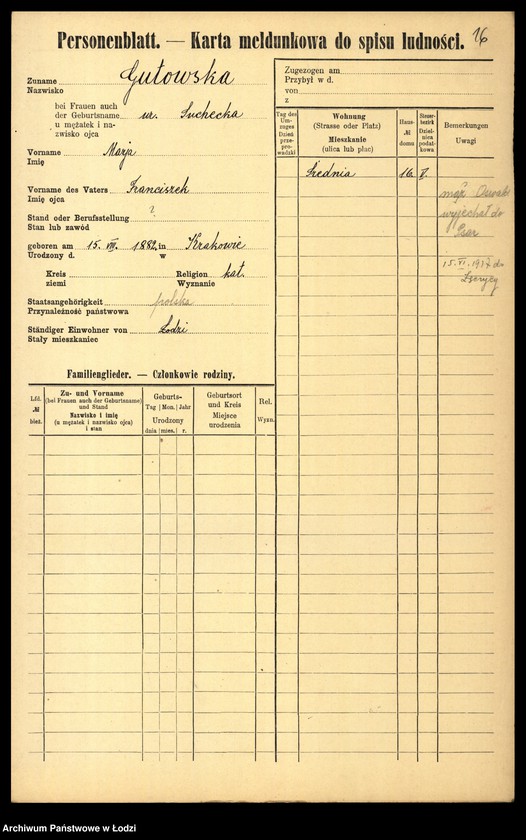 Personenblatt. — Karta meldunkowa do spisu ludności. 16
Zuname Gutowska
Nazwisko
bei Frauen auch
der Geburtsname ur. Suchecka
u mężatek i na-
zwisko ojca
Vorname Marja
Imię
Vorname des Vaters Franciszek
Imię ojca
Stand oder Berufsstellung ?
Stan lub zawód
geboren am 15. VII. 1882 in Krakowie
Urodzony d. w
Kreis Religion kat.
ziemi Wyznanie
Staatsangehörigkeit polska
Przynależność państwowa
Ständiger Einwohner von Łodzi
Stały mieszkaniec
Familienglieder. — Członkowie rodziny.
Lfd. № bież.
Zu- und Vorname
(bei Frauen auch der Geburtsname)
und Stand
Nazwisko i imię
(u mężatek i nazwisko ojca)
i stan
Geburts-
Tag Mon. Jahr
Urodzony
dnia mies. r.
Geburtsort
und Kreis
Miejsce
urodzenia
Rel.
Wyzn.
Zugezogen am
Przybył w d.
von
z
Tag des
Um-
zuges
Dzień
prze-
prowadzki
Wohnung
(Strasse oder Platz)
Mieszkanie
(ulica lub plac)
Haus-
№
domu
Steuer-
bezirk
Dziel-
nica
podat-
kowa
Bemerkungen
Uwagi
Średnia 16. V.
mąż
wyjechał do
15. VI. 1917 do
Archiwum Państwowe w Łodzi